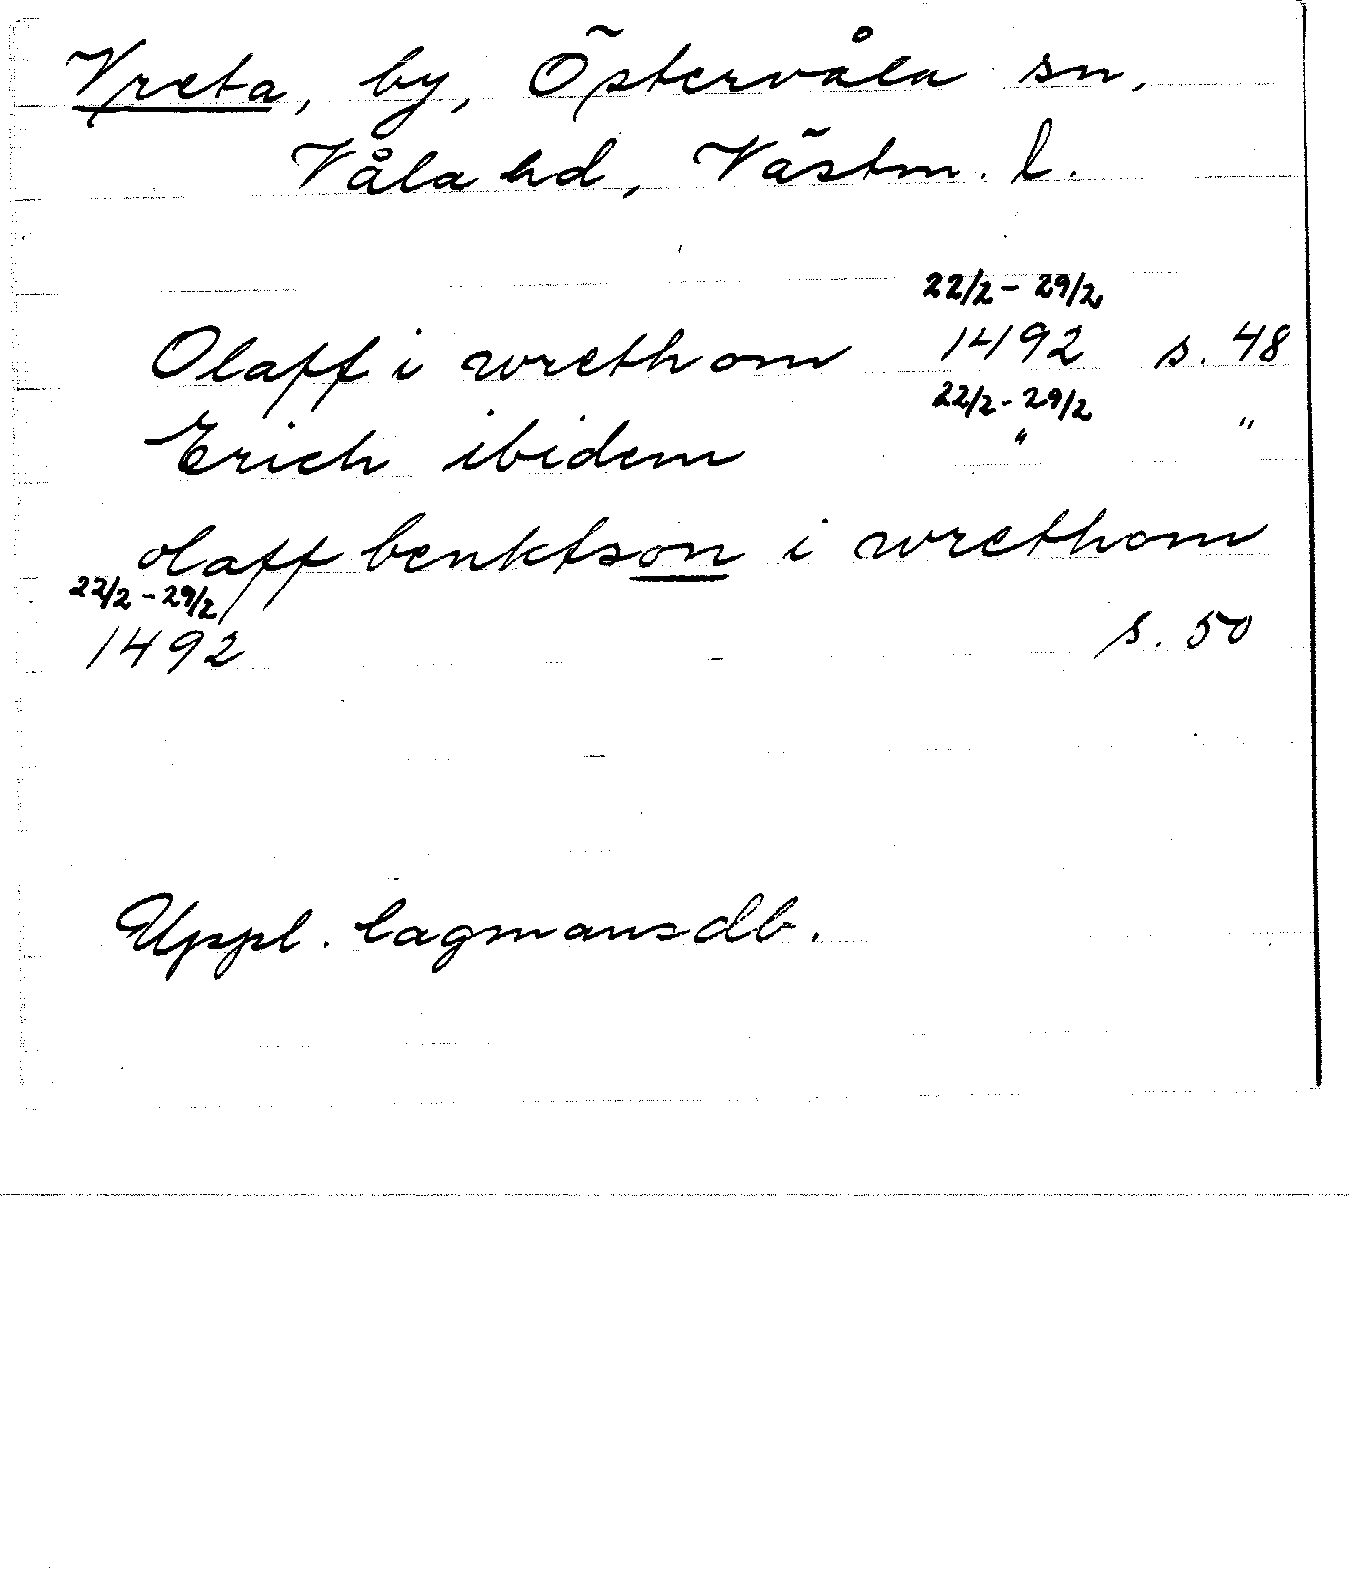 Vreta, by, Östervåla sn,
Våla hd, Västm. l.
22/2 - 29/2
Olaff i wrethom 1492 s. 48
22/2 - 29/2
Erich ibidem " "
olaff benktson i wrethom
22/2 - 29/2
1492 s. 50
Uppl. lagmansdb.